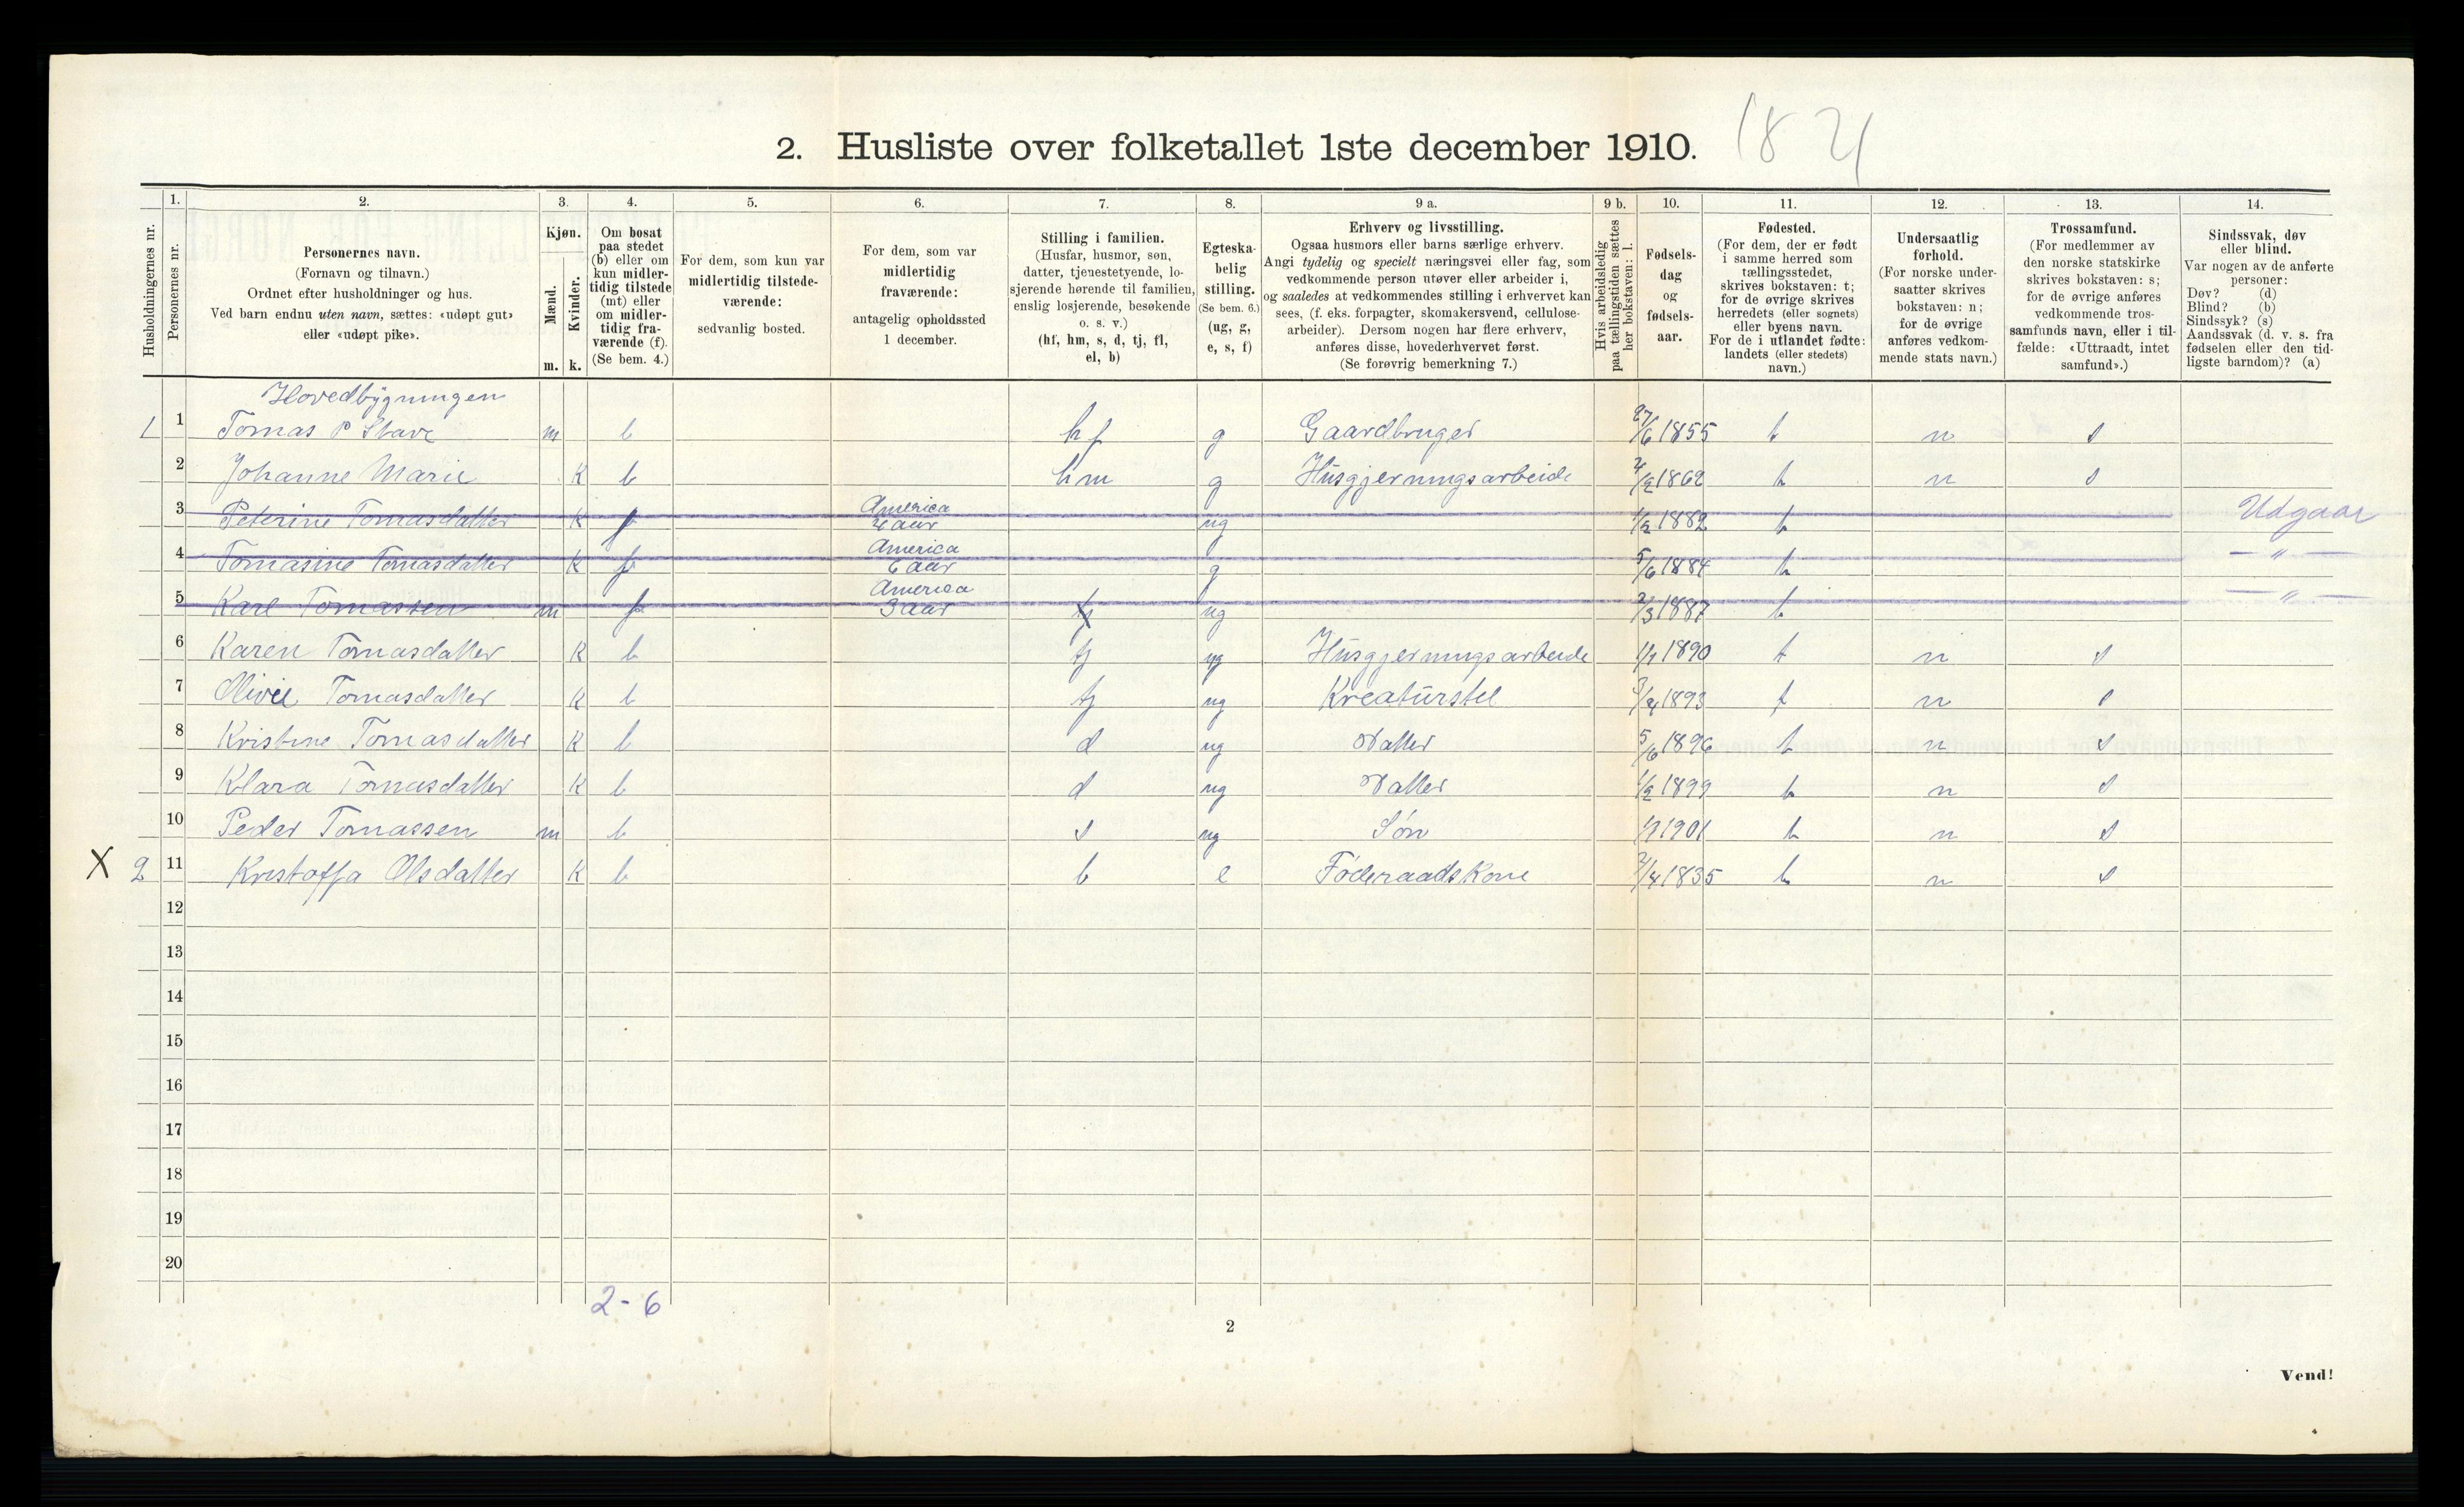 2. Husliste over folketallet 1ste december 1910. 
Husholdningernes nr.
1. Personernes nr.
2.
Personernes navn.
(Fornavn og tilnavn.)
Ordnet efter husholdninger og hus.
Ved barn endnu uten navn, sættes: «udøpt gut»
eller «udøpt pike».
3.
Kjøn.
Mænd. Kvinder.
m. k.
4.
Om bosat
paa stedet
(b) eller om
kun midler-
tidig tilstede
(mt) eller
om midler-
tidig fra-
værende (f).
(Se bem. 4.)
5.
For dem, som kun var
midlertidig tilstede-
værende:
sedvanlig bosted.
6.
For dem, som var
midlertidig
fraværende:
antagelig opholdssted
1 december.
7.
Stilling i familien.
(Husfar, husmor, søn,
datter, tjenestetyende, lo-
sjerende hørende til familien,
enslig losjerende, besøkende
o. s. v.)
(hf, hm, s, d, tj, fl,
el, b)
8.
Egteska-
belig
stilling.
(Se bem. 6.)
(ug, g,
e, s, f)
9 a.
Erhverv og livsstilling.
Ogsaa husmors eller barns særlige erhverv.
Angi tydelig og specielt næringsvei eller fag, som
vedkommende person utøver eller arbeider i,
og saaledes at vedkommendes stilling i erhvervet kan
sees, (f. eks. forpagter, skomakersvend, cellulose-
arbeider). Dersom nogen har flere erhverv,
anføres disse, hovederhvervet først.
(Se forøvrig bemerkning 7.)
9 b.
Hvis arbeidsledig
paa tællingstiden sættes
her bokstaven: l.
10.
Fødsels-
dag
og
fødsels-
aar.
11.
Fødested.
(For dem, der er født
i samme herred som
tællingsstedet,
skrives bokstaven: t;
for de øvrige skrives
herredets (eller sognets)
eller byens navn.
For de i utlandet fødte:
landets (eller stedets)
navn.)
12.
Undersaatlig
forhold.
(For norske under-
saatter skrives
bokstaven: n;
for de øvrige
anføres vedkom-
mende stats navn.)
13.
Trossamfund.
(For medlemmer av
den norske statskirke
skrives bokstaven: s;
for de øvrige anføres
vedkommende tros-
samfunds navn, eller i til-
fælde: «Uttraadt, intet
samfund».)
14.
Sindssvak, døv
eller blind.
Var nogen av de anførte
personer:
Døv? (d)
Blind? (b)
Sindssyk? (s)
Aandssvak (d. v. s. fra
fødselen eller den tid-
ligste barndom)? (a)
Hovedbygningen
1 1 Tomas P Stave m b hf g Gaardbruger 27/6 1855 t n s
2 Johanne Marie K b hm g Husgjerningsarbeide 4/2 1862 t n s
3 Peterine Tomasdatter K f America 4 aar ug 1/2 1882 t Udgaar
4 Tomasine Tomasdatter K f America 6 aar g 5/6 1884 t — " —
5 Karl Tomassen m f America 3 aar ug 2/3 1887 t — " —
6 Karen Tomasdatter K b tj ug Husgjerningsarbeide 1/7 1890 t n s
7 Olivie Tomasdatter K b tj ug Kreaturstel 3/4 1893 t n s
8 Kristine Tomasdatter K b d ug Datter 5/6 1896 t n s
9 Klara Tomasdatter K b d ug Datter 1/2 1899 t n s
10 Peder Tomassen m b s ug Søn 1/7 1901 t n s
X 2 11 Kristoffa Olsdatter K b b e Føderaadskone 3/4 1835 t n s
12
13
14
15
16
17
18
19
20
2 - 6
2
Vend!